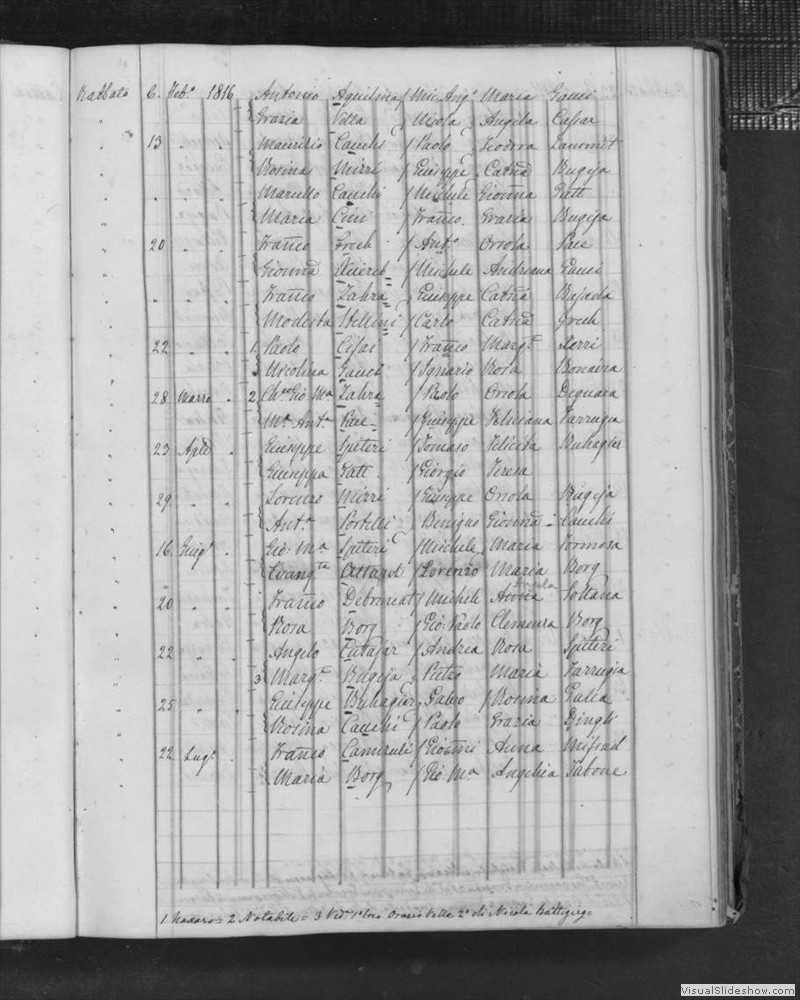 Rabbato 6. Feb.º 1816 Antonio Aquilina / Mic: Ang.º Maria Gauci
" Grazia Villa / Nicola Angela Caspar
" 13 " " Maurilio Cauchi / Paolo Teodora
" Rosina Mizzi / Giuseppe Catña Bugeja
" " " " Marcello Cauchi / Michele Gioñna Gatt
" Maria Cini / Franco. Grazia Bugeja
" 20 " " Franco Grech / Ant.º Orsola Pace
" Gioñna / Michele Andreana Gauci
" " " " Franco Zahra / Giuseppe Catña
" Modesta Stellini / Carlo Catña Grech
" 22 " " 1. Paolo / Franco Marg.ª Xerri
" Nicolina Gauci / Ignazio Rosa Bonavia
" 28 Marzo " 2 Ch.co Gio Mª Zahra / Paolo Orsola Deguara
" Mª Ant.ª Pace / Giuseppe Feliciana Farrugia
" 23 Aple " Giuseppe Spiteri / Tomaso Felicita Buhagiar
" Giuseppa Gatt / Giorgio Teresa
" 29. " " Lorenzo Mizzi / Giuseppe Orsola Bugeja
" Ant.ª Portelli / Benigno Gioñna = Cauchi
" 16. Giug.º " Gio: Mª Spiteri / Michele Maria Formosa
" Evang.ta Attard / Lorenzo Maria Borg
" 20 " " Franco Debrincat / Michele Angela Sultana
" Rosa Borg / Gio: Paolo Clemenza Borg
" 22 " " Angelo Catajar / Andrea Rosa Spiteri
" 3 Marg.ª Bugeja / Pietro Maria Farrugia
" 25 " " Giuseppe Buhagiar Salvo / Rosina Galea
" Rosina Cauchi / Paolo Grazia Dingli
" 22 Lug.º " Franco Camenzuli / Gioñni Anna Mifsud
" Maria Borg / Gio: Mª Angelica Tabone
1. Nadaro = 2 Notabile = 3 Ved.ª 1º loco Orazio Vella 2º di Nicola Battigieg =
VisualSlideshow.com